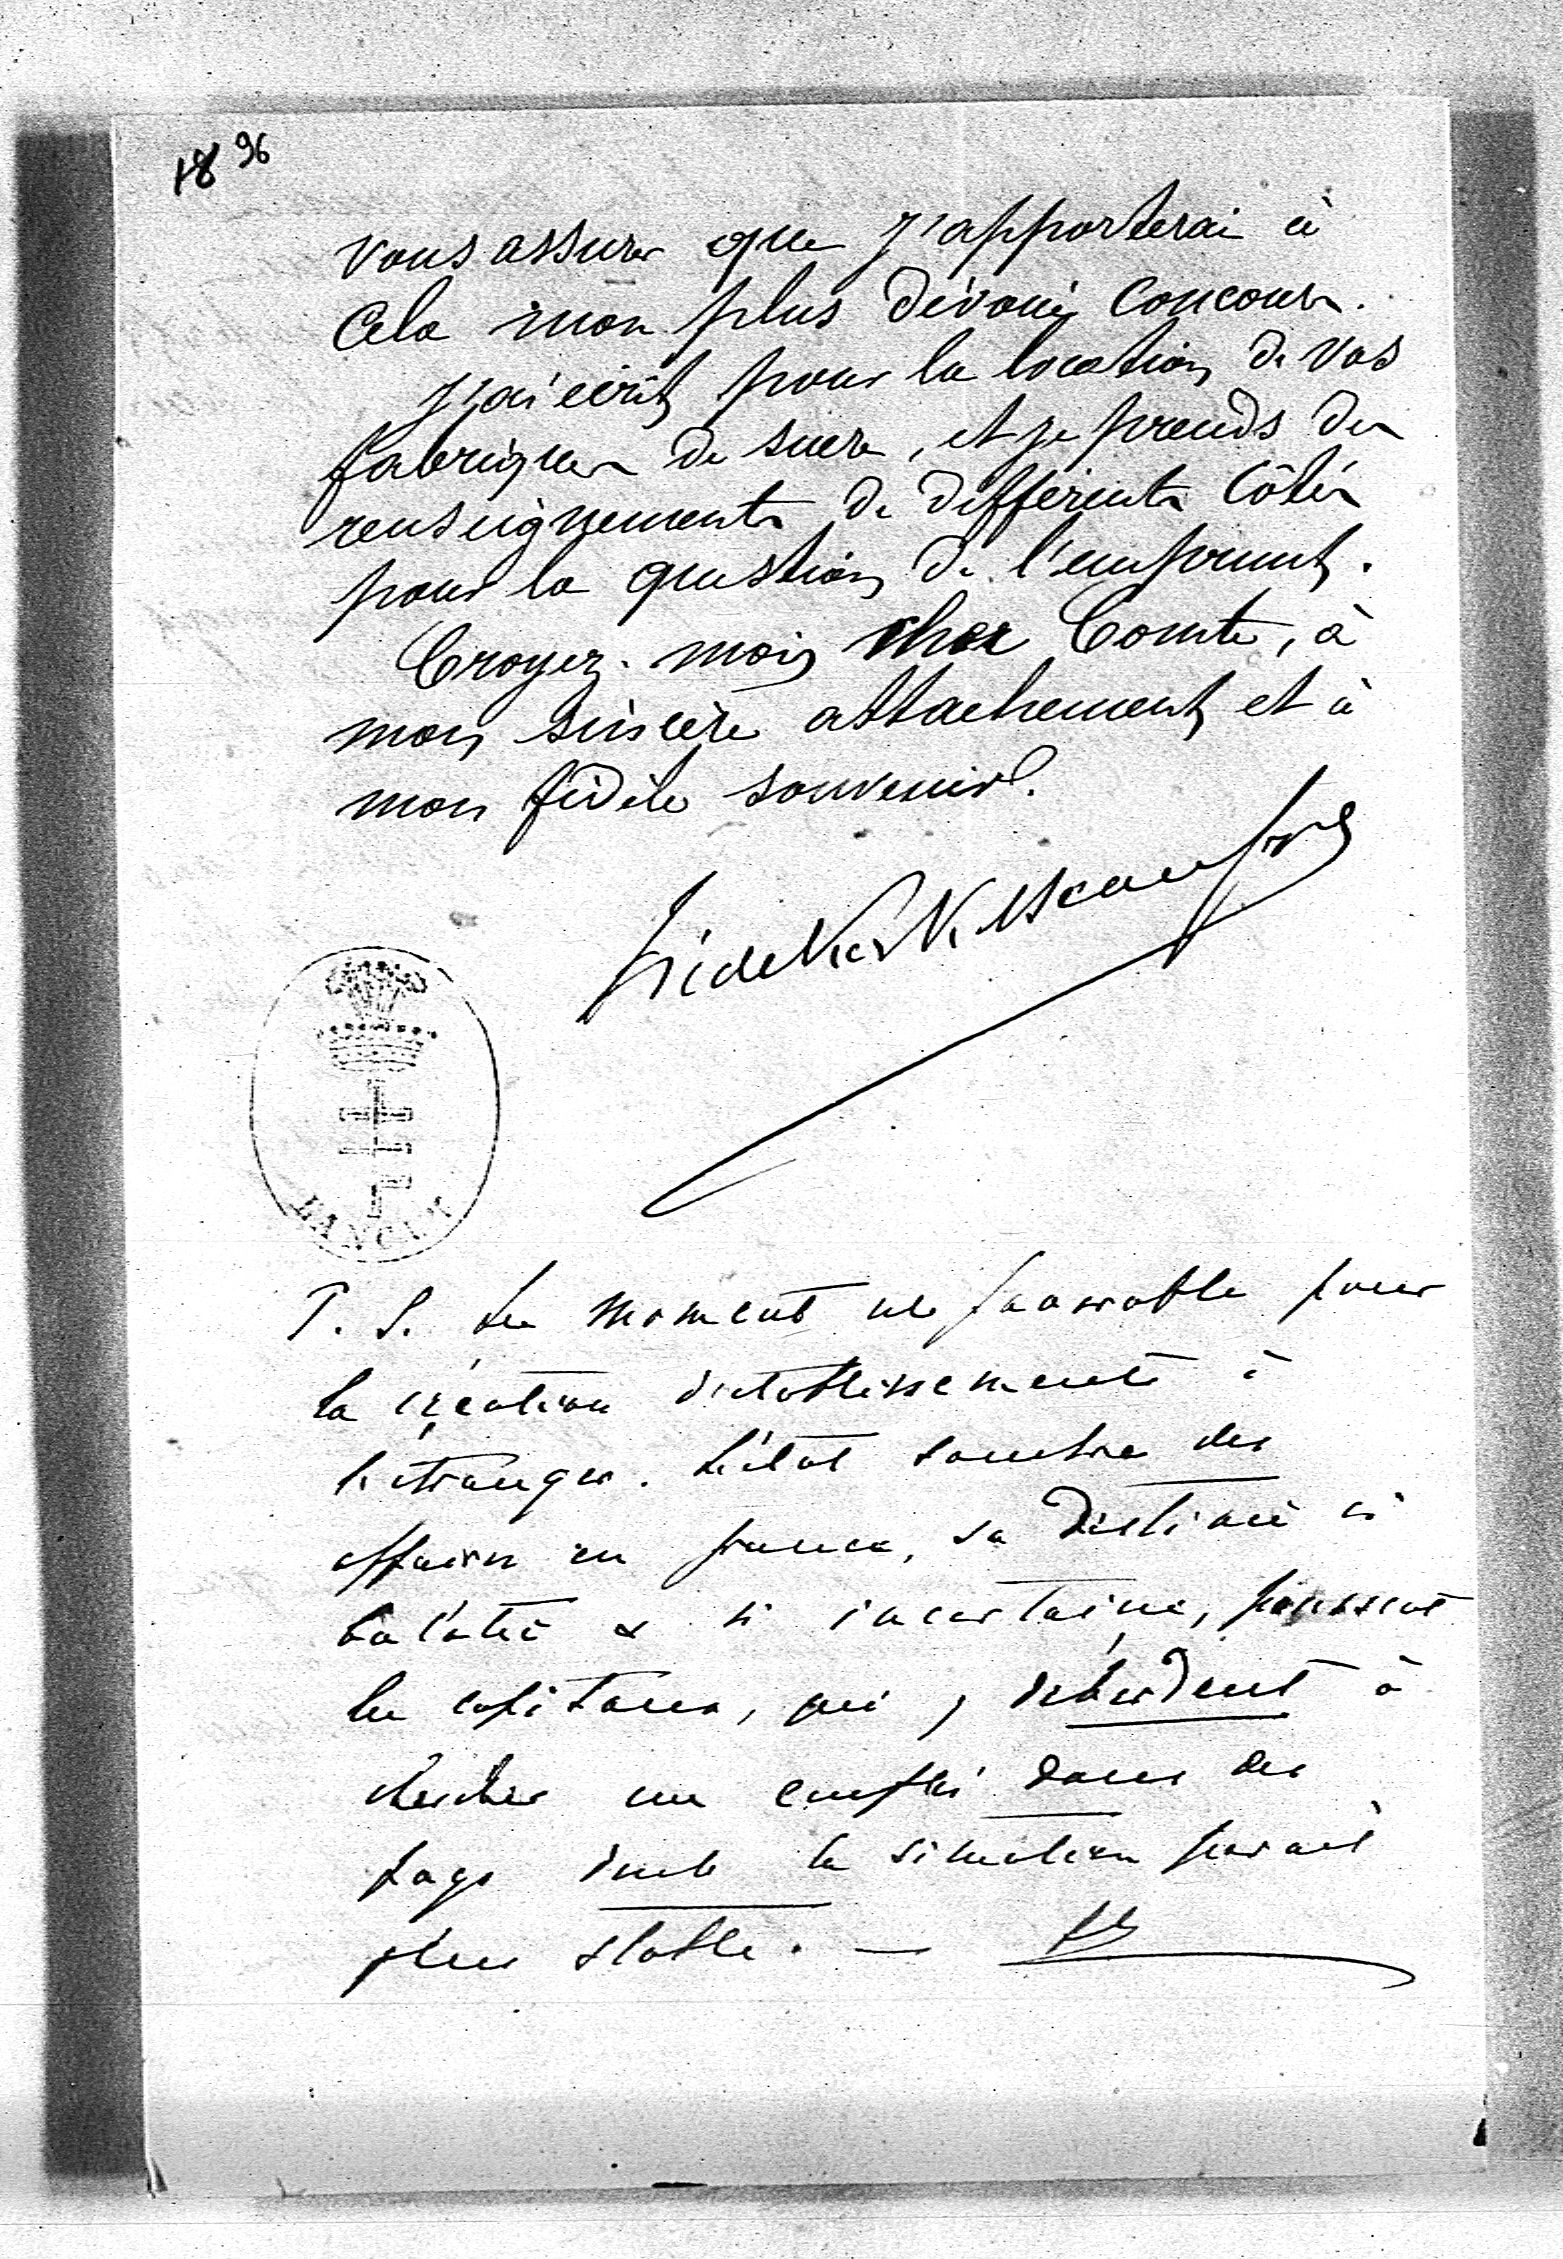 18 96
vous assurer que j'apporterai à
cela mon plus dévoué concours.
j'ai écrit pour la location de vos
fabriques de sucre, et je prends des
renseignements de différents côtés
pour la question de l'emprunt.
Croyez-moi cher Comte, à
mon sincère attachement et à
mon fidèle souvenir.
LANCUT
P. S. Le moment est favorable pour
la création d'établissements à
l'étranger. L'état sombre des
affaires en france, sa destinée si
& si incertaine, poussent
les capitaux, qui y débordent à
chercher un emploi dans des
pays dont la situation parait
plus stable. —